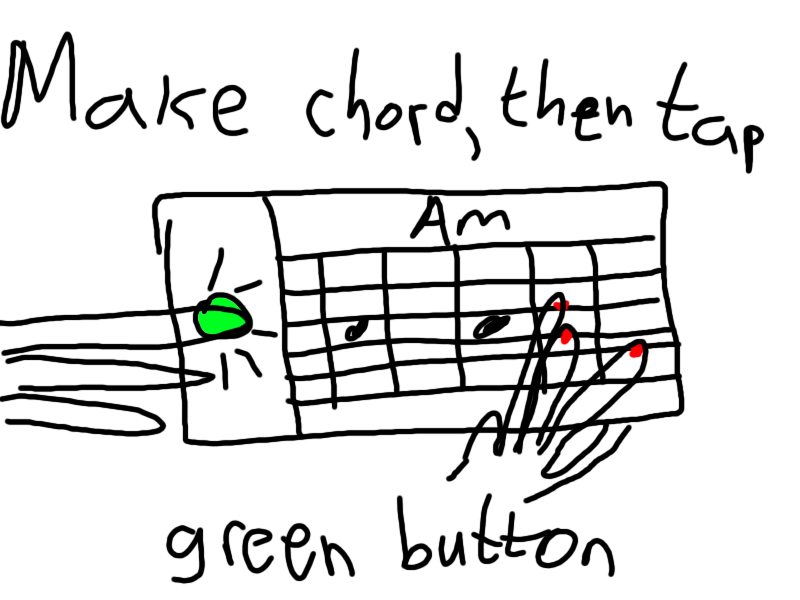 Make chord, then tap
Am
green button